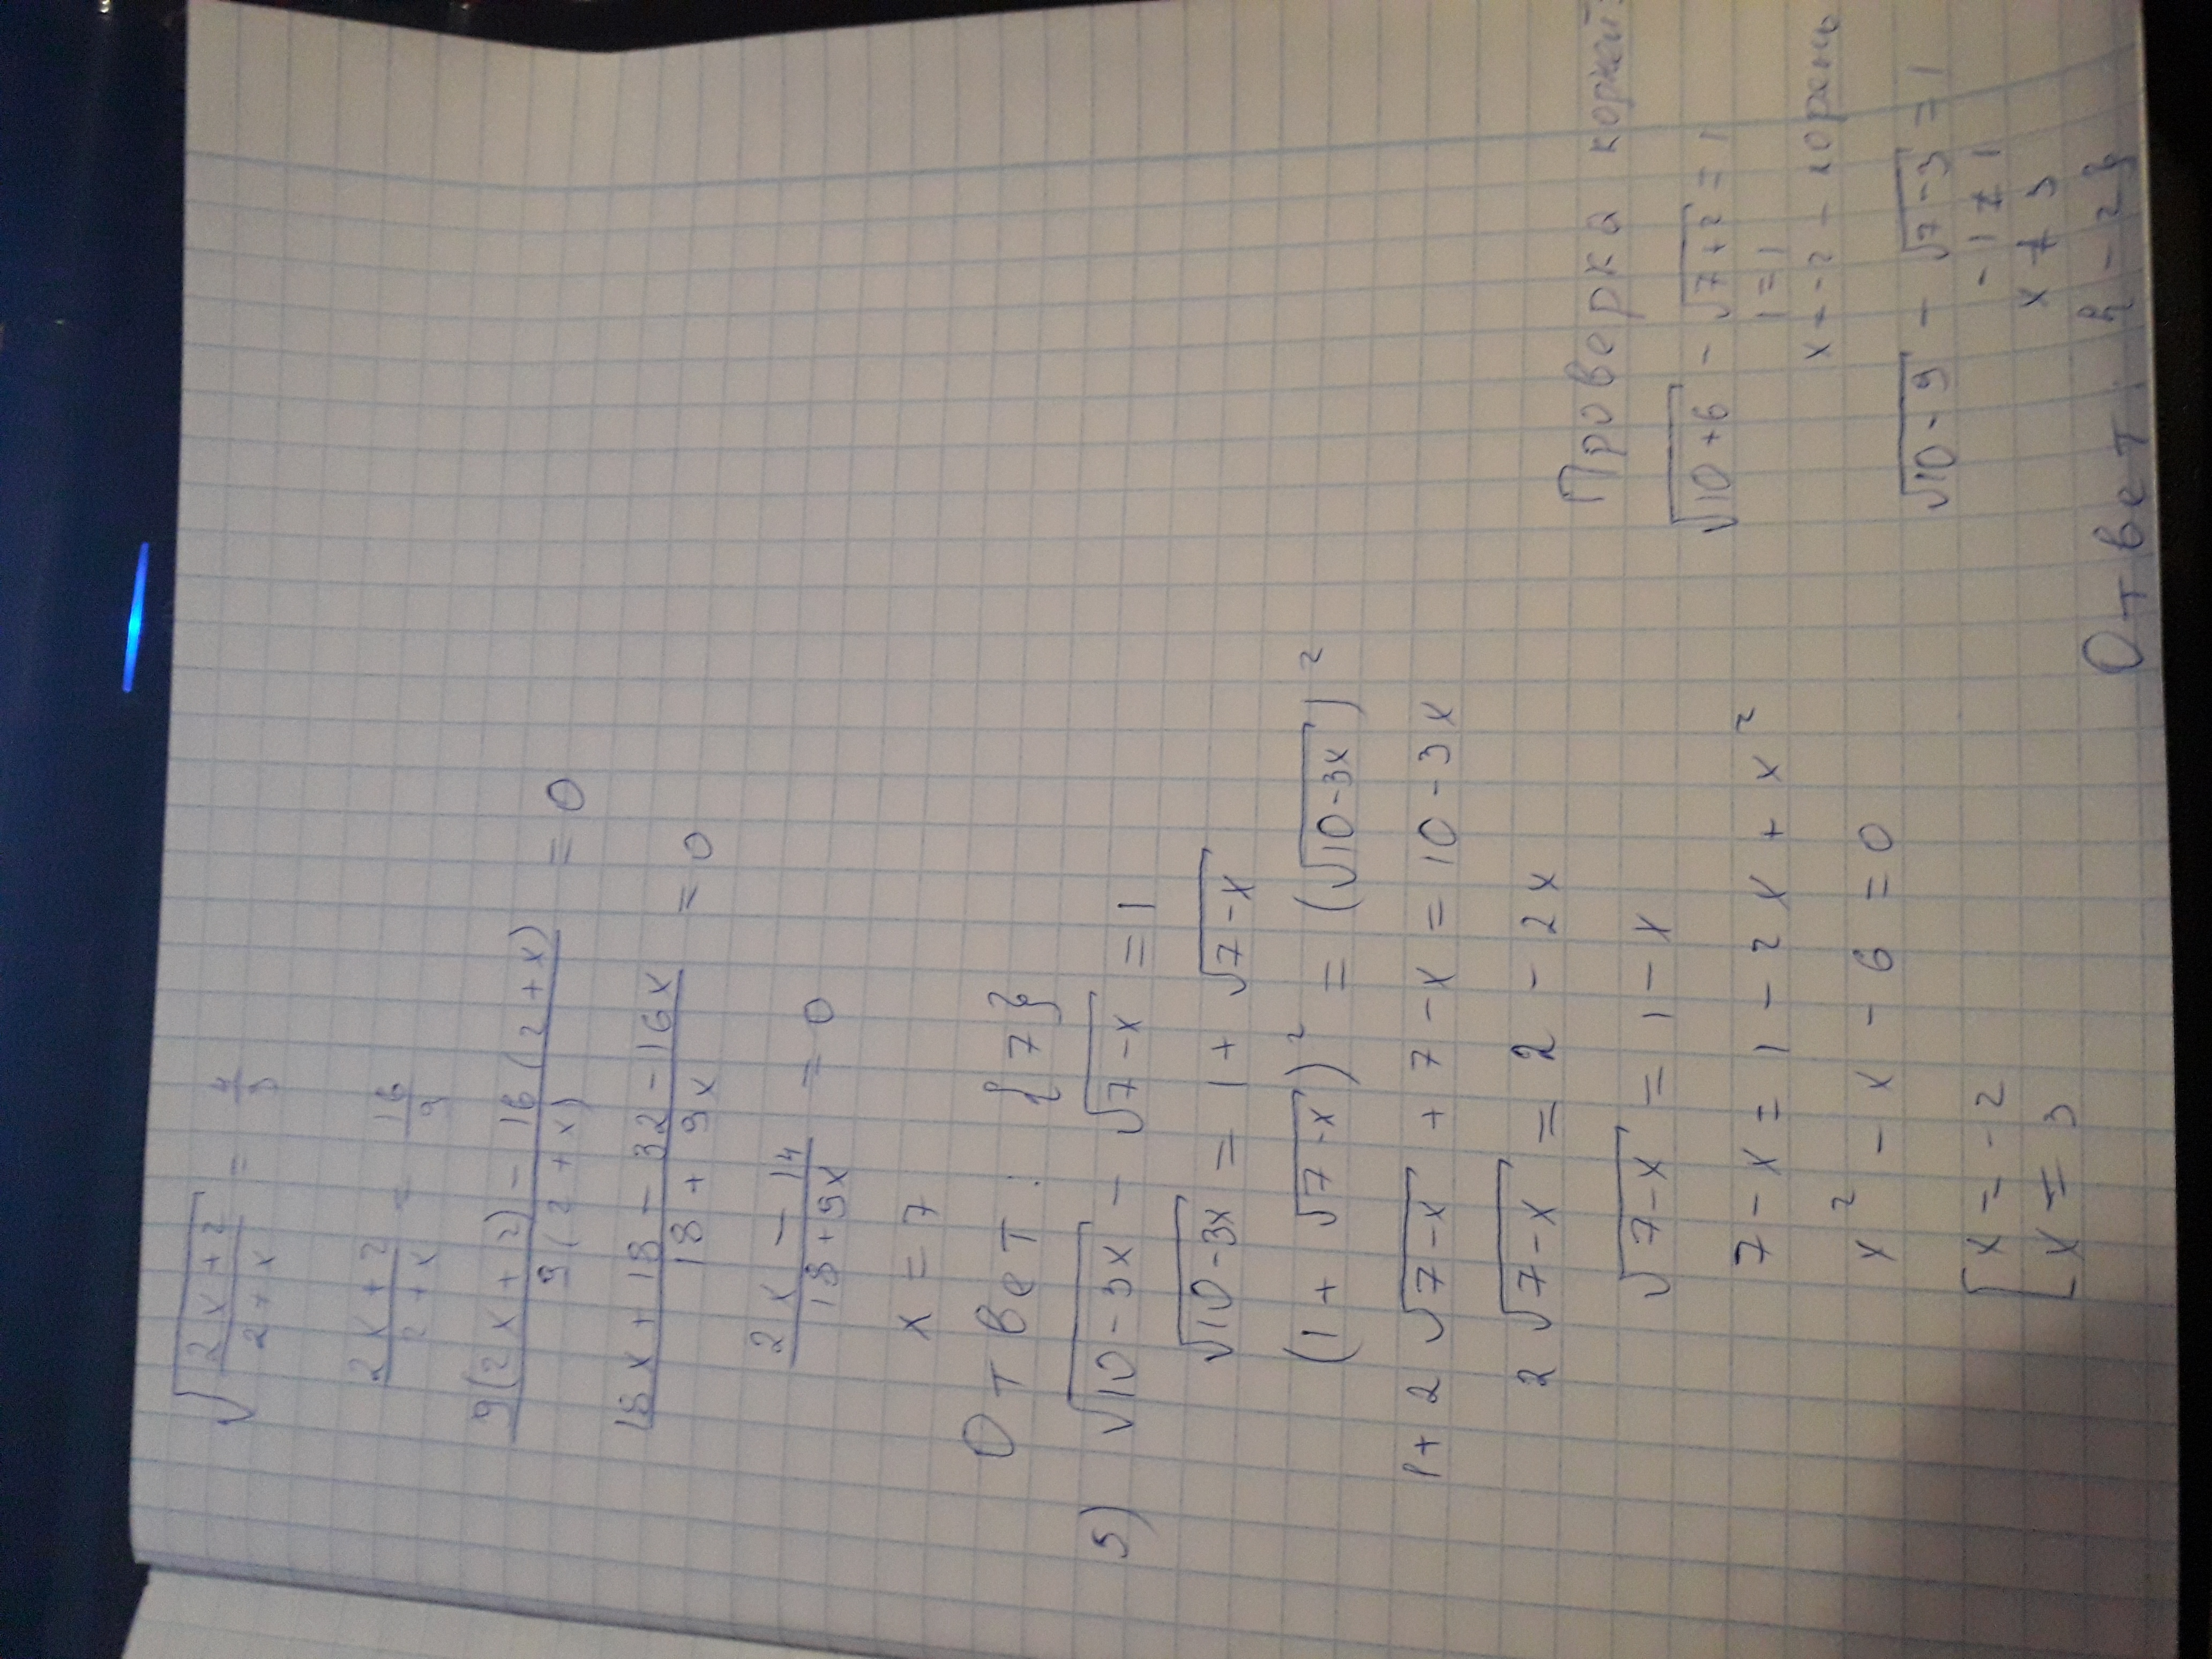 √((2x+2)/(2+x)) = 4/3
(2x+2)/(2+x) = 16/9
(9(2x+2) - 16(2+x))/(9(2+x)) = 0
(18x+18-32-16x)/(18+9x) = 0
(2x-14)/(18+9x) = 0
x = 7
Ответ: {7}
5) √(10-3x) - √(7-x) = 1
√(10-3x) = 1 + √(7-x)
(1 + √(7-x))² = (√(10-3x))²
1 + 2√(7-x) + 7 - x = 10 - 3x
2√(7-x) = 2 - 2x
√(7-x) = 1 - x
7 - x = 1 - 2x + x²
x² - x - 6 = 0
[x = -2
[x = 3
Проверка корней:
√(10+6) - √(7+2) = 1
1 = 1
x = -2 - корень
√(10-9) - √(7-3) = 1
-1 ≠ 1
x ≠ 3
Ответ: {-2}